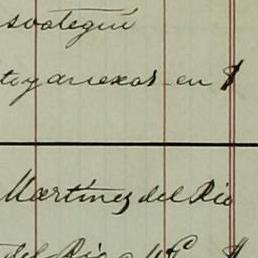 svategui
to y anexos en $
Martínez del Rio
del Rio y C $